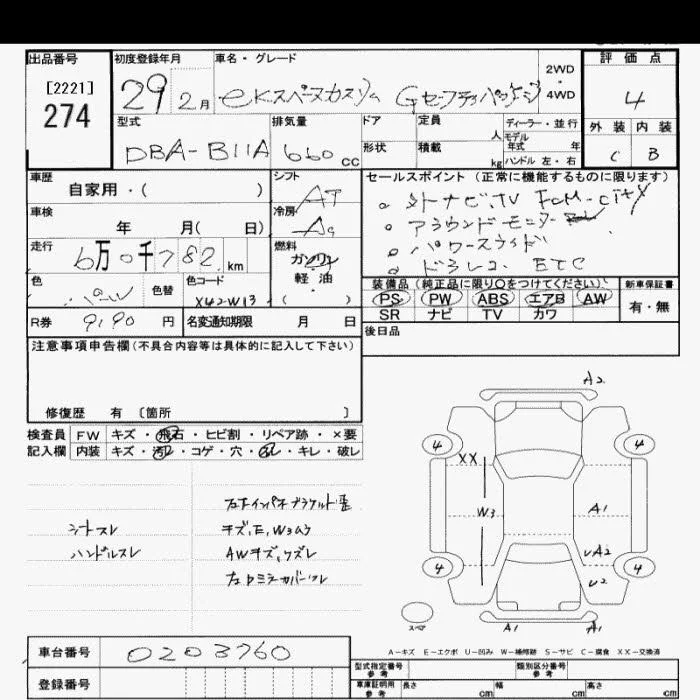 出品番号 初度登録年月 車名・グレード 2WD 評価点
[2221] 29 2月 eKスペースカスタム Gセーフティパッケージ 4WD 4
274 型式 排気量 ドア 定員 人 ディーラー・並行 外装 内装
モデル年式 年
DBA-B11A 660cc 形状 積載 kg ハンドル 左・右 C B
車歴 シフト セールスポイント(正常に機能するものに限ります)
自家用・( ) AT 。 ナビ,TV
車検 冷房 。アラウンドモニター
年 月( 日) 。パワースライド
走行 燃料 。ドラレコ ETC
6万0千782km ガソリン
軽油
( )
色 色替 色コード 装備品(純正品に限り〇をつけてください) 新車保証書
X42-W13 PS PW ABS エアB AW 有・無
R券 円 名変通知期限 月 日 SR ナビ TV カワ
注意事項申告欄(不具合内容等は具体的に記入して下さい) 後日品
修復歴 有 〔箇所 〕
検査員 FW キズ・飛石・ヒビ割・リペア跡・×要
記入欄 内装 キズ・汚れ・コゲ・穴・スレ・キレ・破レ
シートスレ
ハンドルスレ
キズ,E,W3有
AWキズ,ケズレ
A2
4 4
XX
W3 A1
UA2
4 4
U2
スペア A1 A1
A-キズ E-エクボ U-凹み W-補修跡 S-サビ C-腐食 XX-交換済
車台番号 0203760 型式指定番号 参考 類別区分番号 参考
登録番号 車庫証明用 参考 長さ cm 幅 cm 高さ cm